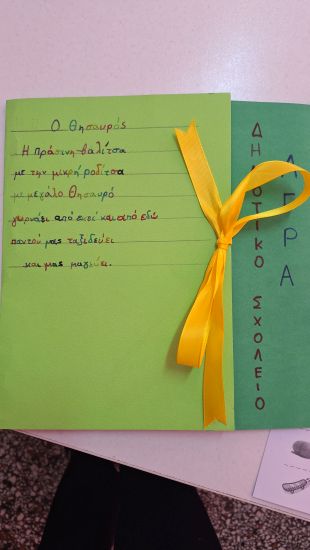 Ο Θησαυρός
Η πράσινη βαλίτσα
με την μικρή ροδίτσα
με μεγάλο θησαυρό
γυρνάει από εκεί και από εδώ
παντού μας ταξιδεύει
και μας μαγεύει.
ΔΗΜΟΤΙΚΟ ΣΧΟΛΕΙΟ
ΑΓΡΑ